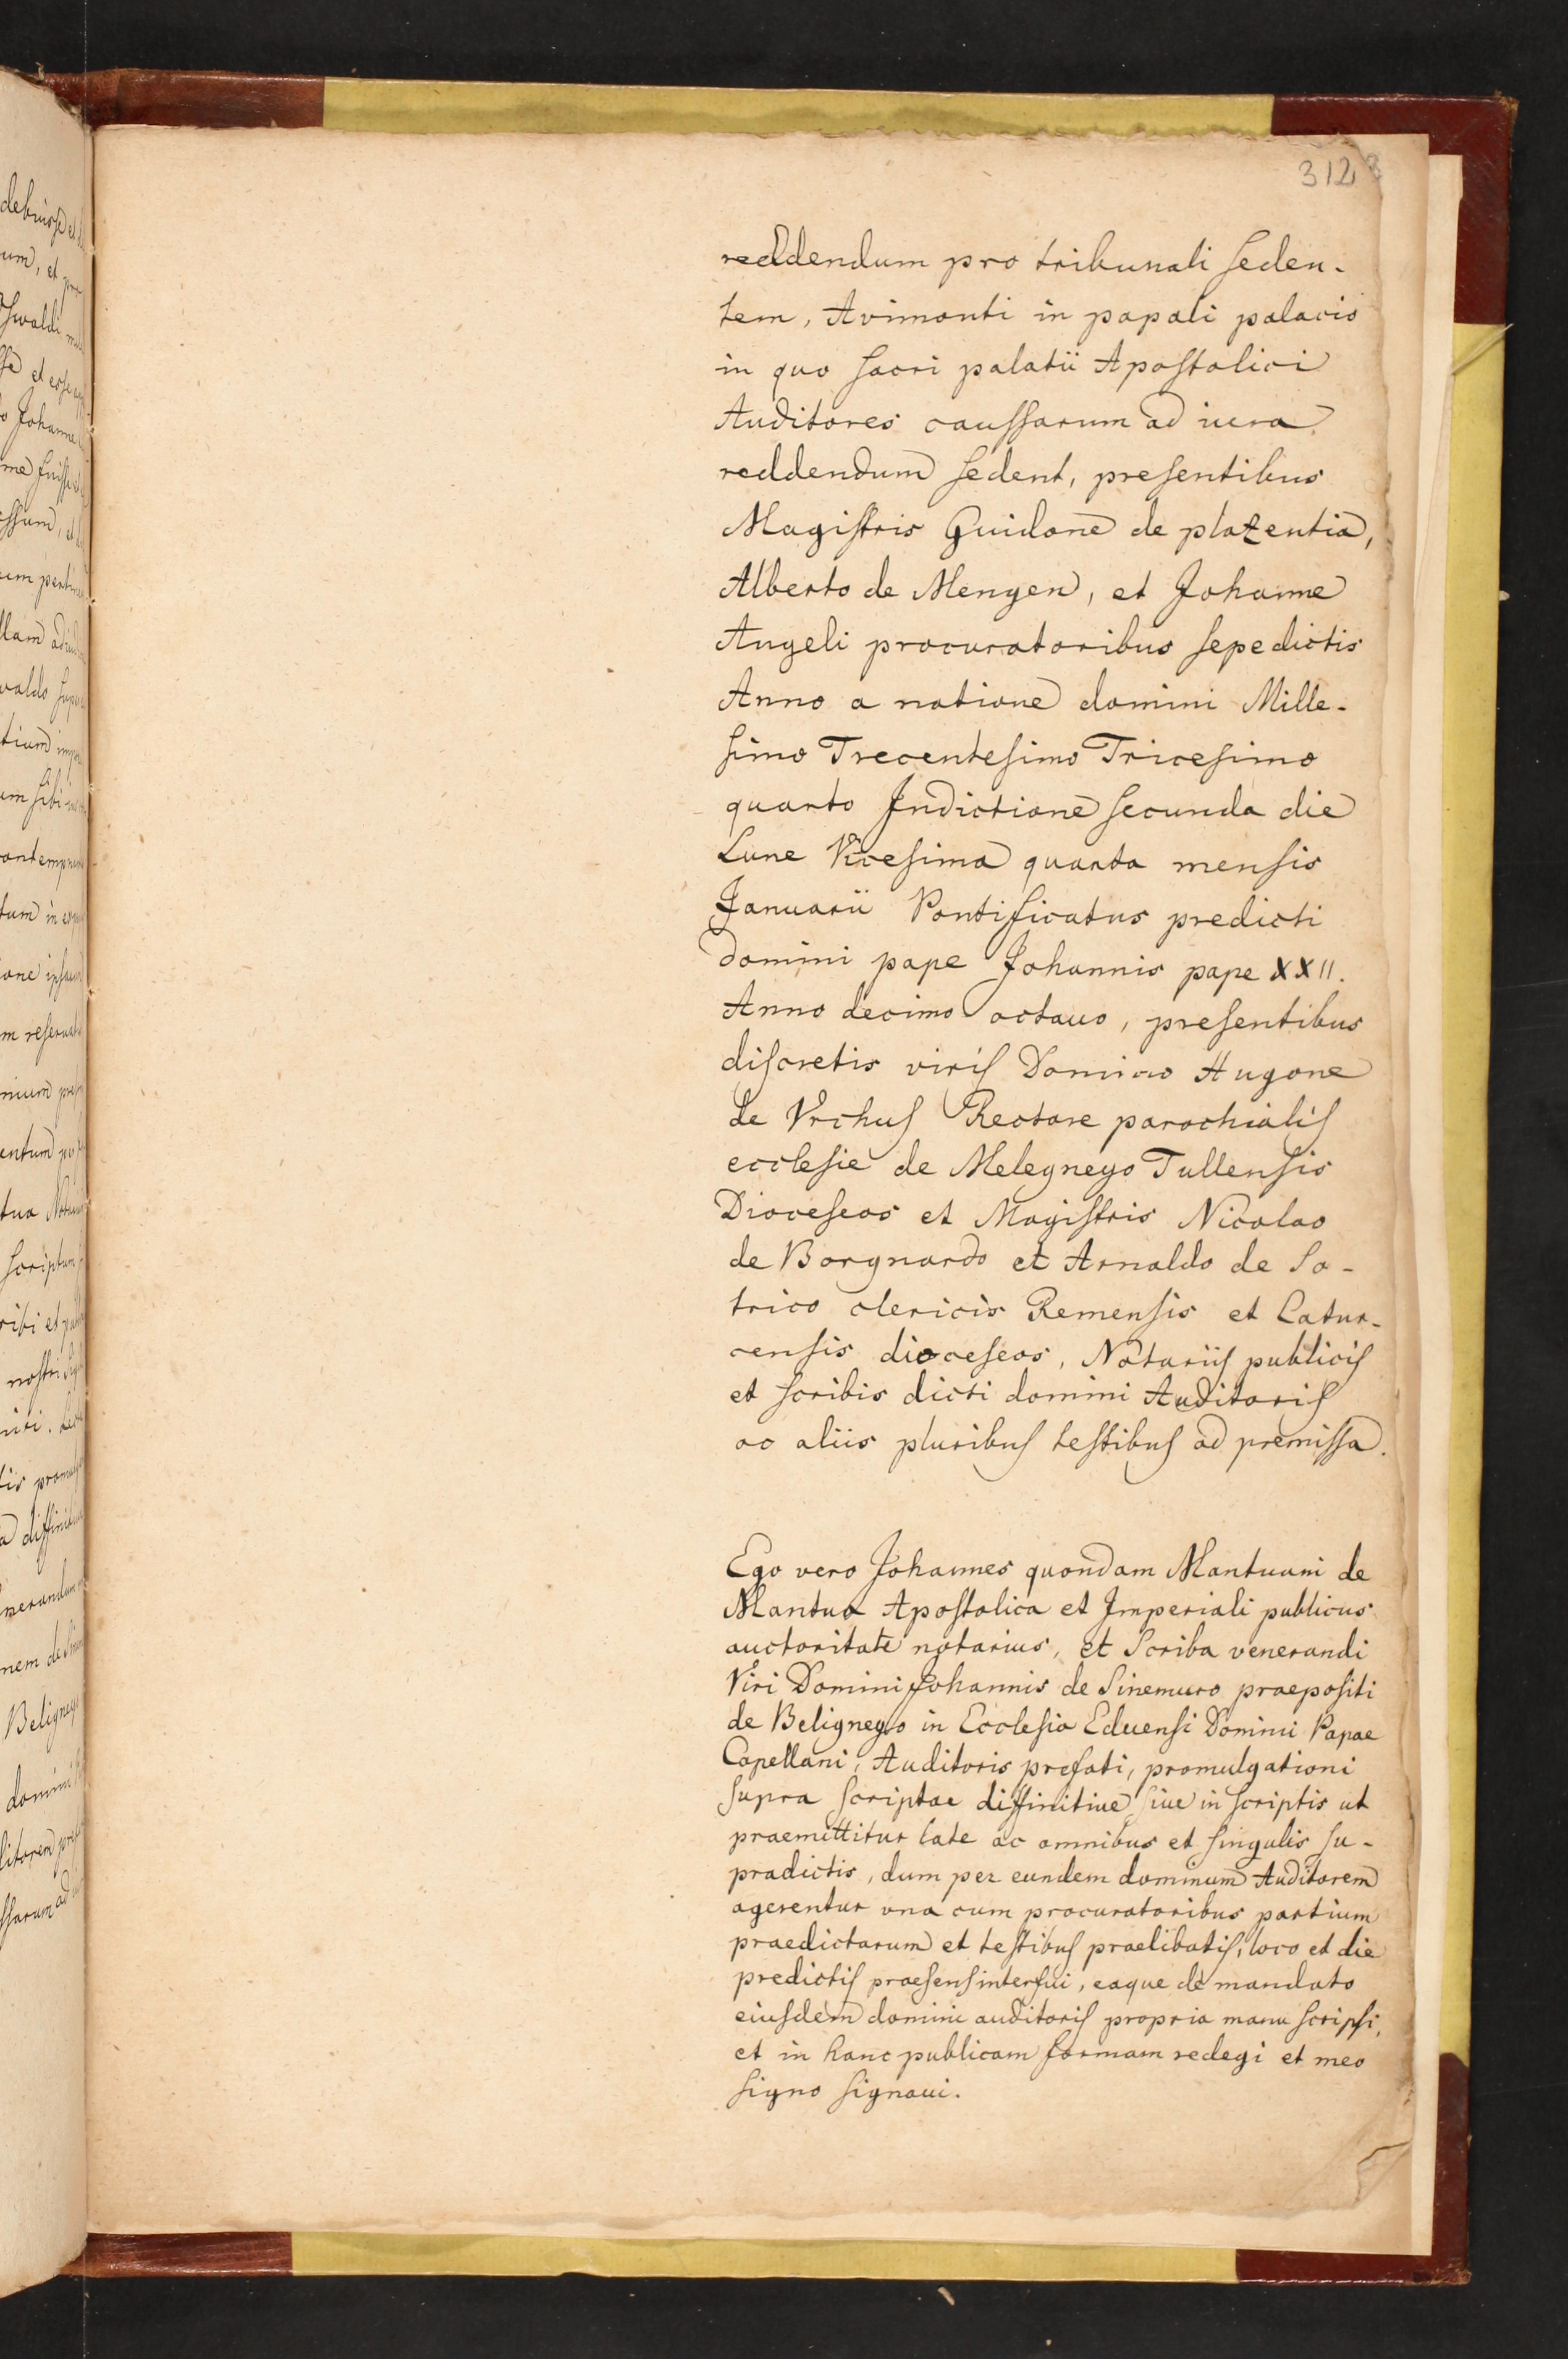 3128
reddendum pro tribunali seden-
tem, Avimonti in papali palacio
in quo sacri palatii Apostolici
Auditores caussarum ad iura
reddendum sedent, presentibus
Magistris Guidone de plazentia,
Alberto de Mengen, et Johanne
Angeli procuratoribus sepedictis
Anno a natione domini Mille-
simo Trecentesimo Tricesimo
quarto Indictione secunda die
Lune Vicesima quarta mensis
Januarii Pontificatus predicti
domini pape Johannis pape XXII.
Anno decimo octauo, presentibus
discretis viris Domino Hugone
de Vrchus Rectore parochialis
ecclesie de Melegneyo Tullensis
Dioceseos et Magistris Nicolao
de Borgnardo et Arnaldo de Sa-
trico clericis Remensis et Catur-
censis dioceseos, Notariis publicis
et scribis dicti domini Auditoris
ac aliis pluribus testibus ad premissa.
Ego vero Johannes quondam Mantuani de
Mantua Apostolica et Imperiali publicus
auctoritate notarius, et Scriba venerandi
Viri Domini Johannis de Sinemuro praepositi
de Beligneyo in Ecclesia Eduensi Domini Papae
Capellani, Auditoris prefati, promulgationi
supra scriptae diffinitiue siue in scriptis ut
praemittitur late ac omnibus et singulis su-
pradictis, dum per eundem dominum Auditorem
agerentur vna cum procuratoribus partium
praedictarum et testibus praelibatis, loco et die
predictis praesens interfui, eaque de mandato
eiusdem domini auditoris propria manu scripsi,
et in hanc publicam formam redegi et meo
signo signaui.